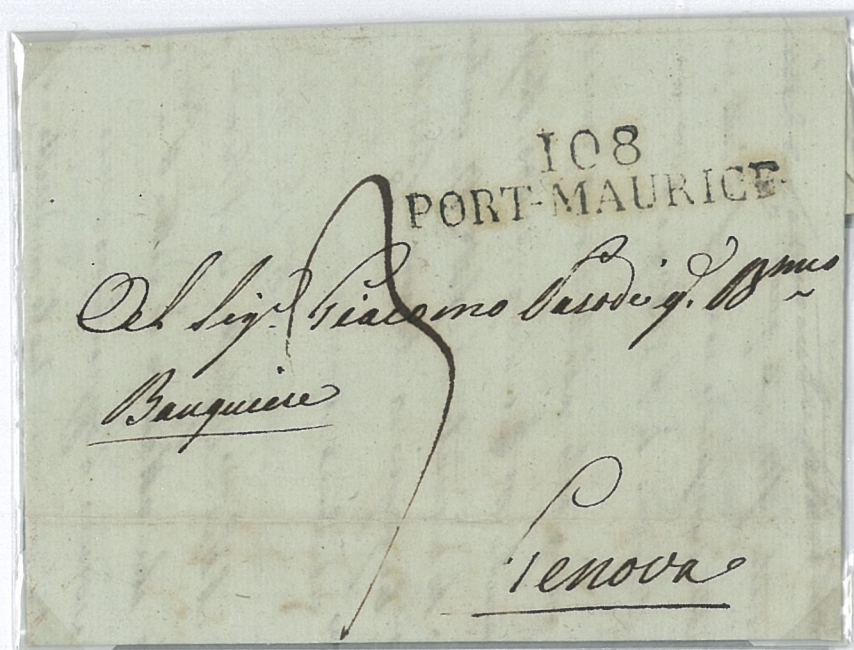 108
PORT-MAURICE
Al Sigr. Giacomo Parodi q. Bmeo
Banquiere
Genova
3